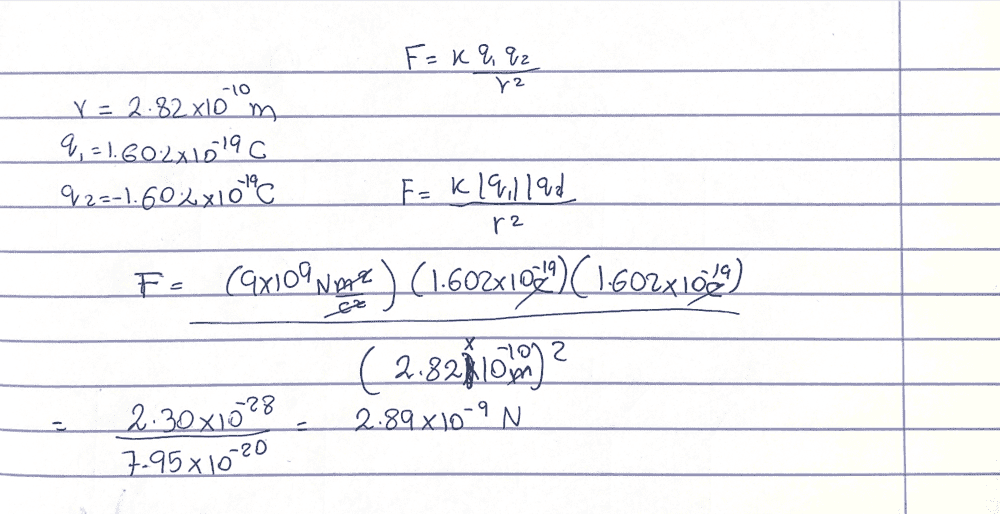 F = K q₁ q₂ / r²
r = 2.82 x 10⁻¹⁰ m
q₁ = 1.602 x 10⁻¹⁹ C
q₂ = -1.602 x 10⁻¹⁹ C
F = K |q₁| |q₂| / r²
F = (9x10⁹ N m²/c²) (1.602x10⁻¹⁹ c) (1.602x10⁻¹⁹ c) / (2.82 x 10⁻¹⁰ m)²
= 2.30 x 10⁻²⁸ / 7.95 x 10⁻²⁰ = 2.89 x 10⁻⁹ N